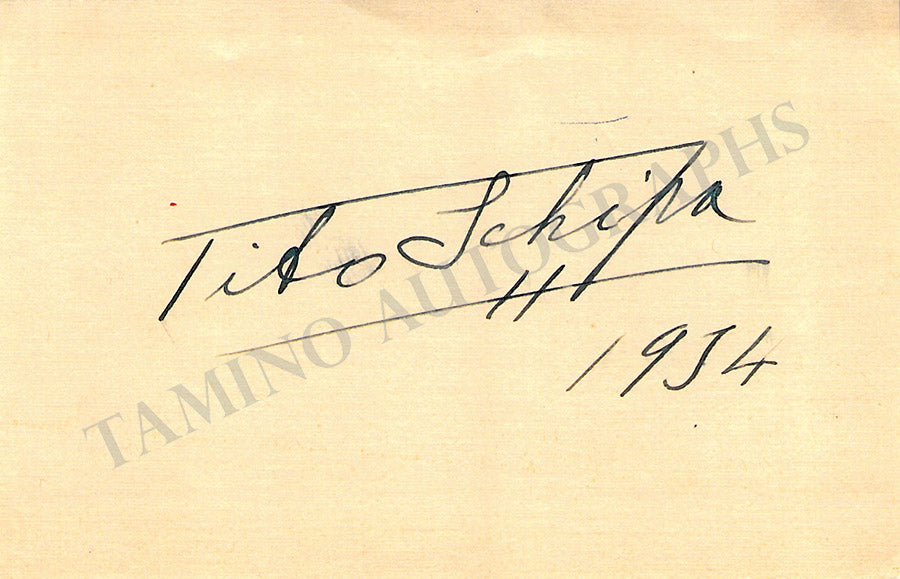 Tito Schipa
1934
TAMINO AUTOGRAPHS